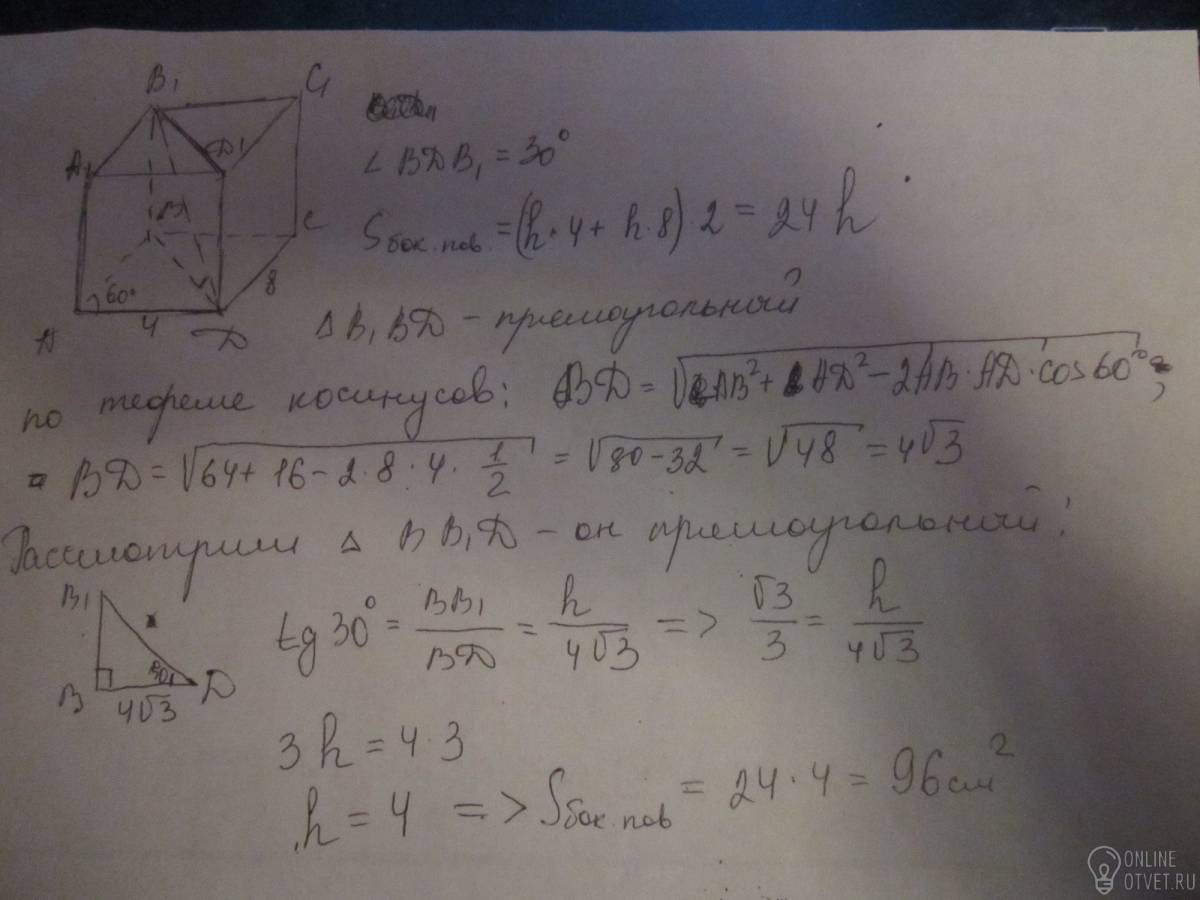 B₁ C₁
A₁ Д₁
В С
60° 8
А 4 Д
∠ ВДВ₁ = 30°
Sбок. пов. = (h·4 + h·8)·2 = 24 h
△ В₁ВД – прямоугольный
по теореме косинусов: BD = √(AB² + AD² − 2AB·AD·cos60°)
= ВД = √(64 + 16 − 2·8·4·1/2) = √(80 − 32) = √48 = 4√3
Рассмотрим △ ВВ₁Д – он прямоугольный!
В₁
30°
В Д
4√3
tg 30° = ВВ₁/ВД = h/4√3 => √3/3 = h/4√3
3h = 4·3
h = 4 => Sбок.пов = 24·4 = 96 см²
ONLINE
OTVET.RU